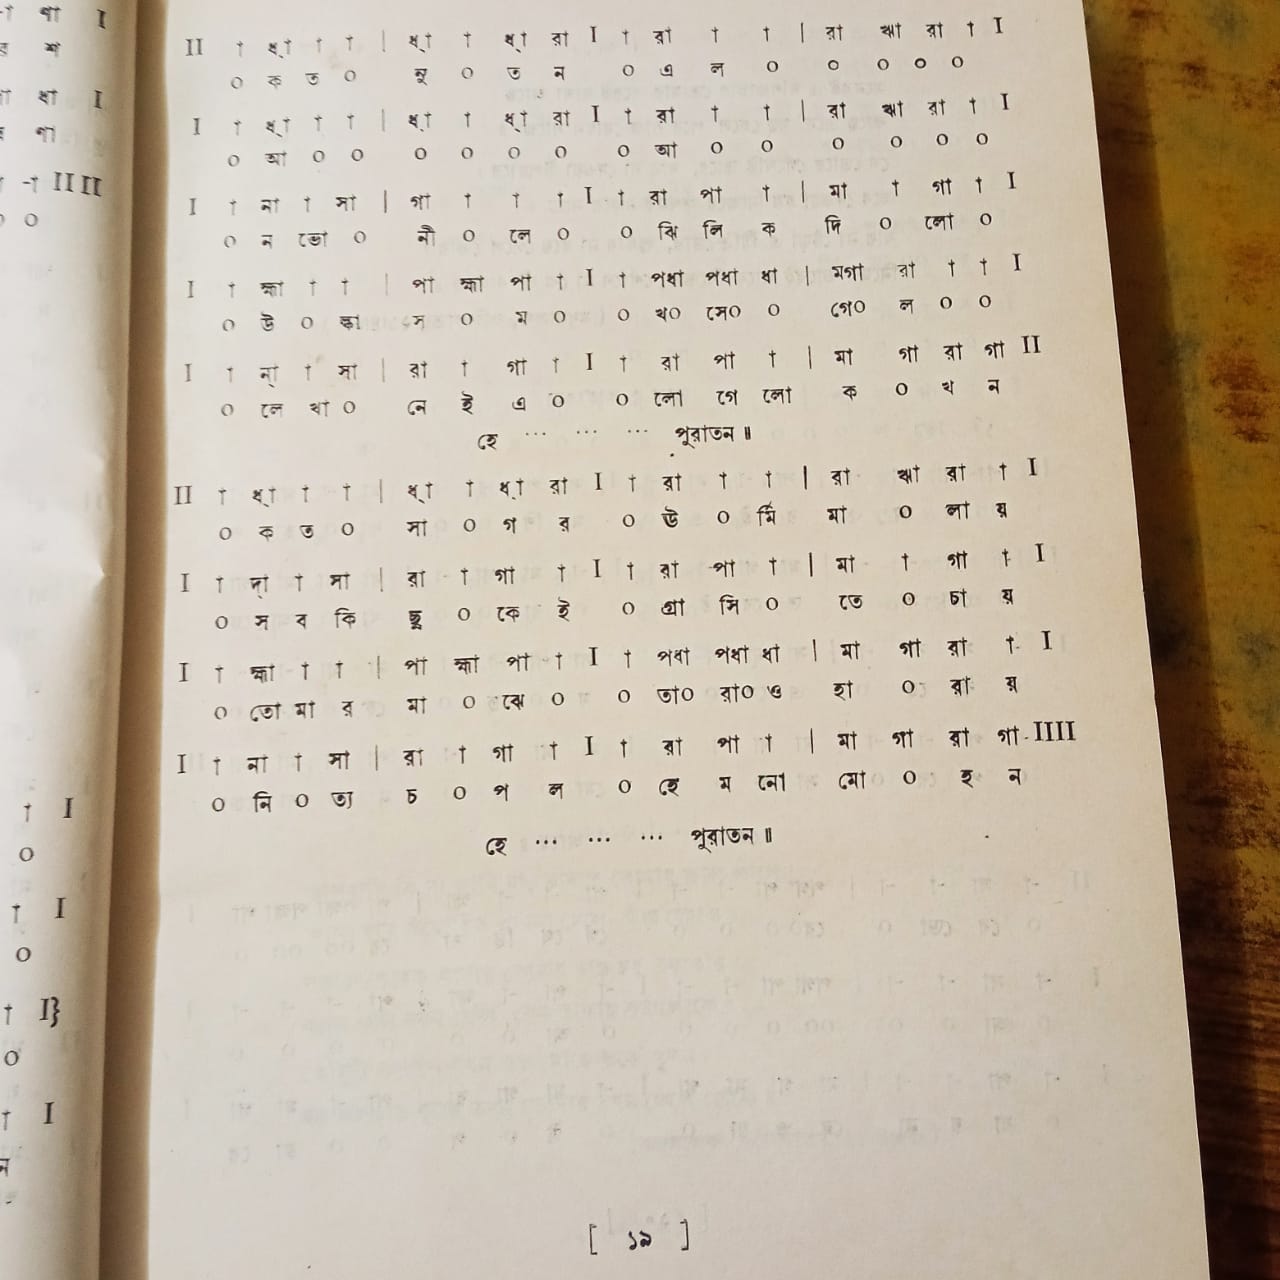 II † ধ়া † † | ধ়া † ধ়া রা I † রা † † | রা ঋা রা † I
০ ক ত ০ নূ ০ ত ন ০ এ ল ০ ০ ০ ০ ০
I † ধ়া † † | ধ়া † ধ়া রা I † রা † † | রা ঋা রা † I
০ আ ০ ০ ০ ০ ০ ০ ০ আ ০ ০ ০ ০ ০ ০
I † না † সা | গা † † † I † রা পা † | মা † গা † I
০ ন ভো ০ নী ০ লে ০ ০ ঝি লি ক দি ০ লো ০
I † হ্মা † † | পা হ্মা পা † I † পধা পধা ধা | মগা রা † † I
০ উ ০ ল্কা স ০ ম ০ ০ খ০ সে০ ০ গে০ ল ০ ০
I † ন়া † সা | রা † গা † I † রা পা † | মা গা রা গা II
০ লে খা ০ নে ই এ ০ ০ লো গে লো ক ০ খ ন
হে ... ... ... পুরাতন ॥
II † ধ়া † † | ধ়া † ধ়া রা I † রা † † | রা ঋা রা † I
০ ক ত ০ সা ০ গ র ০ ঊ ০ র্মি মা ০ লা য়
I † ন়া † সা | রা † গা † I † রা পা † | মা † গা † I
০ স ব কি ছু ০ কে ই ০ গ্রা সি ০ তে ০ চা য়
I † হ্মা † † | পা হ্মা পা † I † পধা পধা ধা | মা গা রা † I
০ তো মা র মা ০ ঝে ০ ০ তা০ রা০ ও হা ০ রা য়
I † না † সা | রা † গা † I † রা পা † | মা গা রা গা IIII
০ নি ০ ত্য চ ০ প ল ০ হে ম নো মো ০ হ ন
হে ... ... ... পুরাতন ॥
[ ১৯ ]